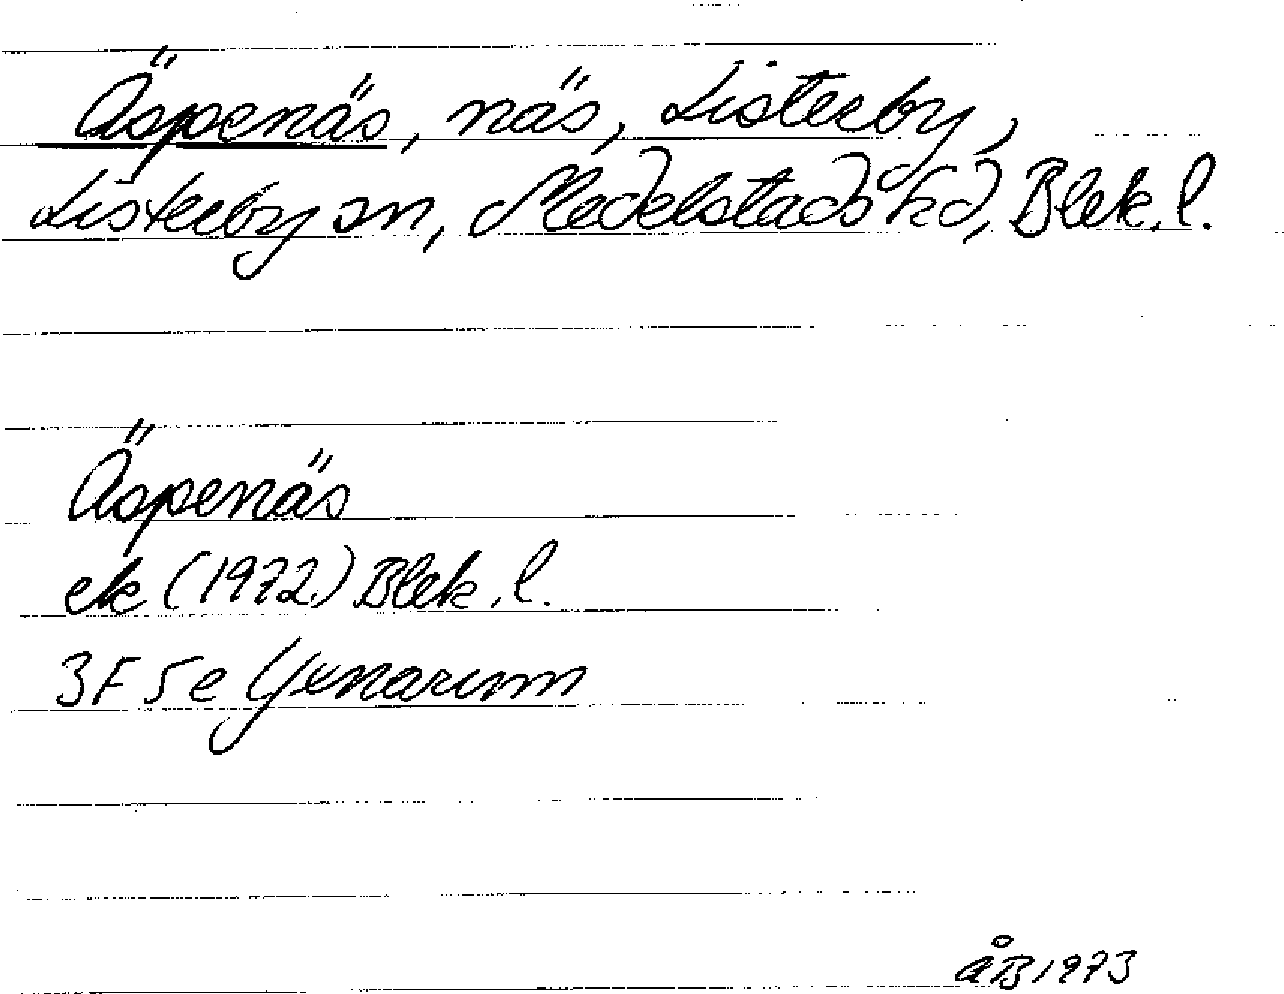 Äspenäs, näs, Listerby,
Listerby sn, Medelstads hd, Blek. l.
Äspenäs
ek (1972) Blek. l.
3F 5e Gunarum
åB 1973